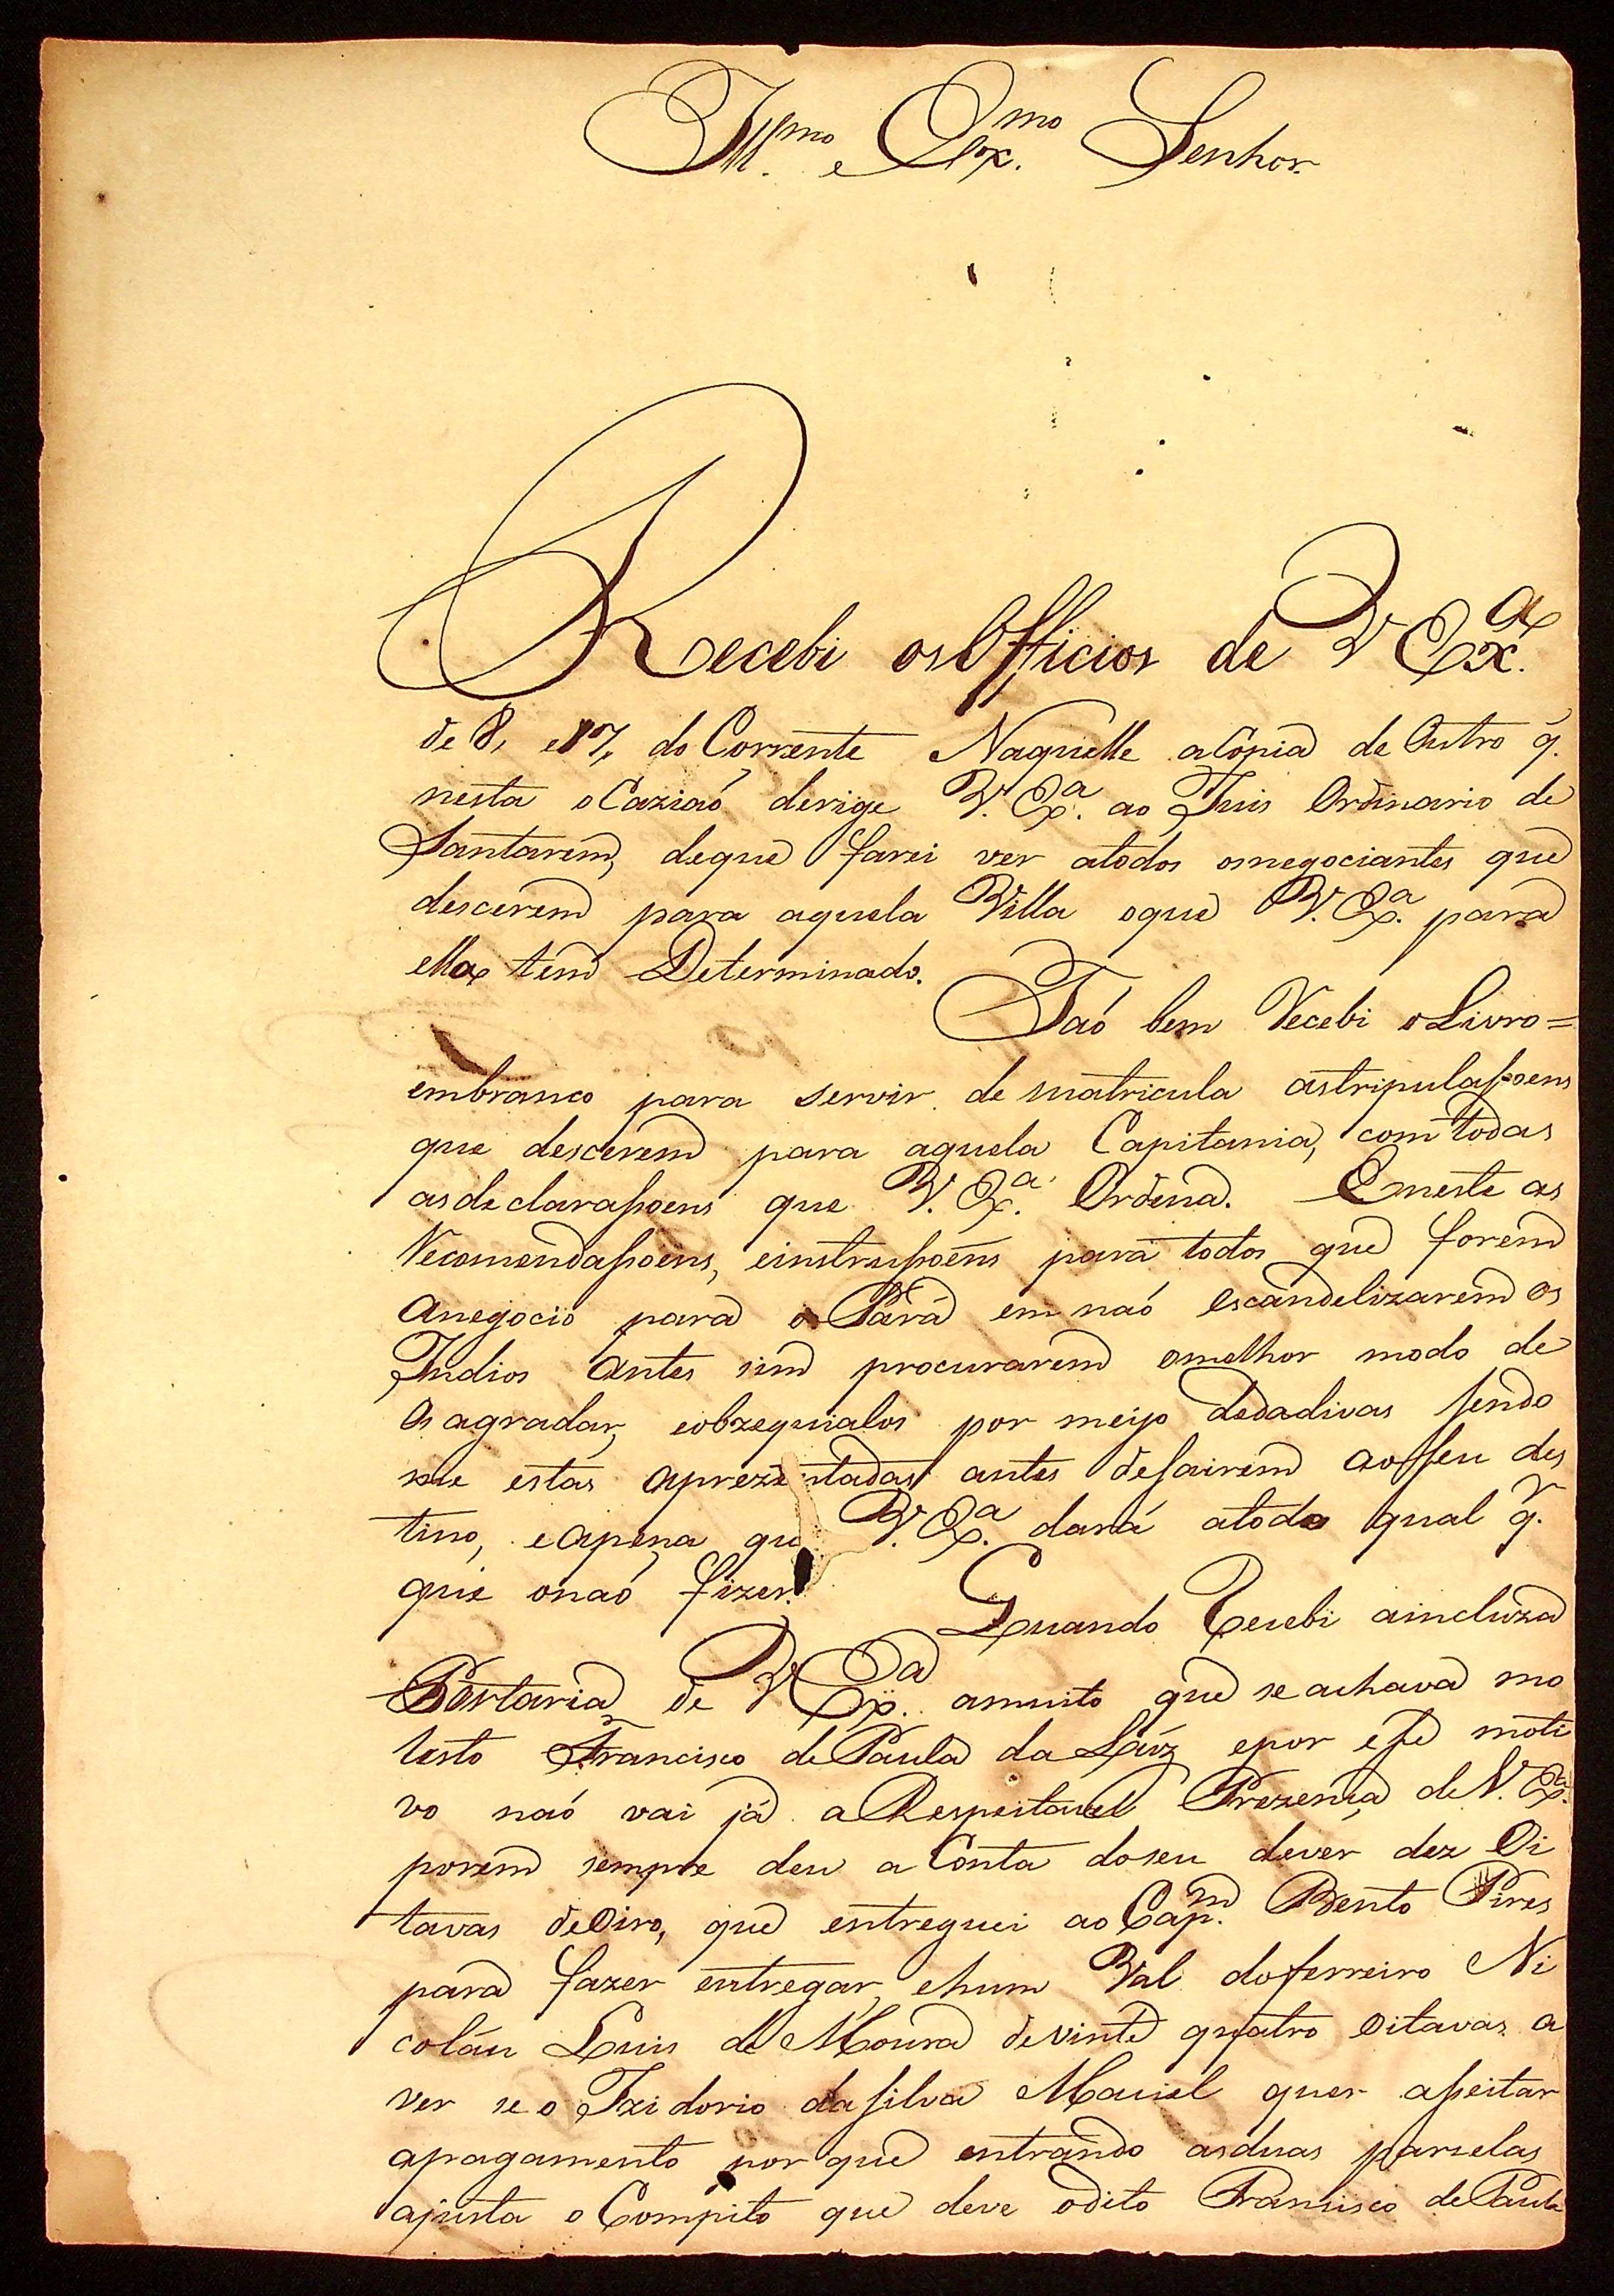 Ill.mo e Ex.mo Senhor.
Recebi os Officios de V Ex.a
de 8, e 17, do Corrente Naquelle a Copia de Outro q.
nesta o Caziaó derige V. Ex.a ao Juis Ordinario de
Santarem, deque farei ver atodos osnegociantes que
descerem para aquela Villa oque V. Ex.a para
ella tem Determinado.
Taó bem Recebi o Livro=
embranco para servir de matricula astripulaſsoens
que descerem para aquela Capitania, com todas
asdeclaraſsoens que V. Ex.a Ordena. Emeste as
Recomendaſsoens, einstrusoens para todos que forem
anegocio para o Pará em naó escandelizarem os
Indios antes sim procurarem omelhor modo de
os agradar, eobzequialos por meijo dedadivas sendo
me estas aprezentadas antes desairem aoſseu des
tino, e apena que V. Ex.a dará atodo qual q.
que onaó fizer.
Quando Recebi aincluza
Portaria de V Ex.a amuito que se achava mo
lesto Francisco de Paula da Lúz epor eſse moti
vo naó vai já a Respeitavel Prezensa de V. Ex.a
porem sempre deu a Conta doseu dever dez Oi
tavas deOiro, que entreguei ao Cap.m Bento Pires
para fazer entregar, ehum Val doferreiro Ni
coláu Luis de Moura devinte quatro oitavas a
ver se o Izidorio da silva Maciel quer aſseitar
apagamento por que entrando asduas parselas
ajusta o Compito que deve odito Fransisco de Paula